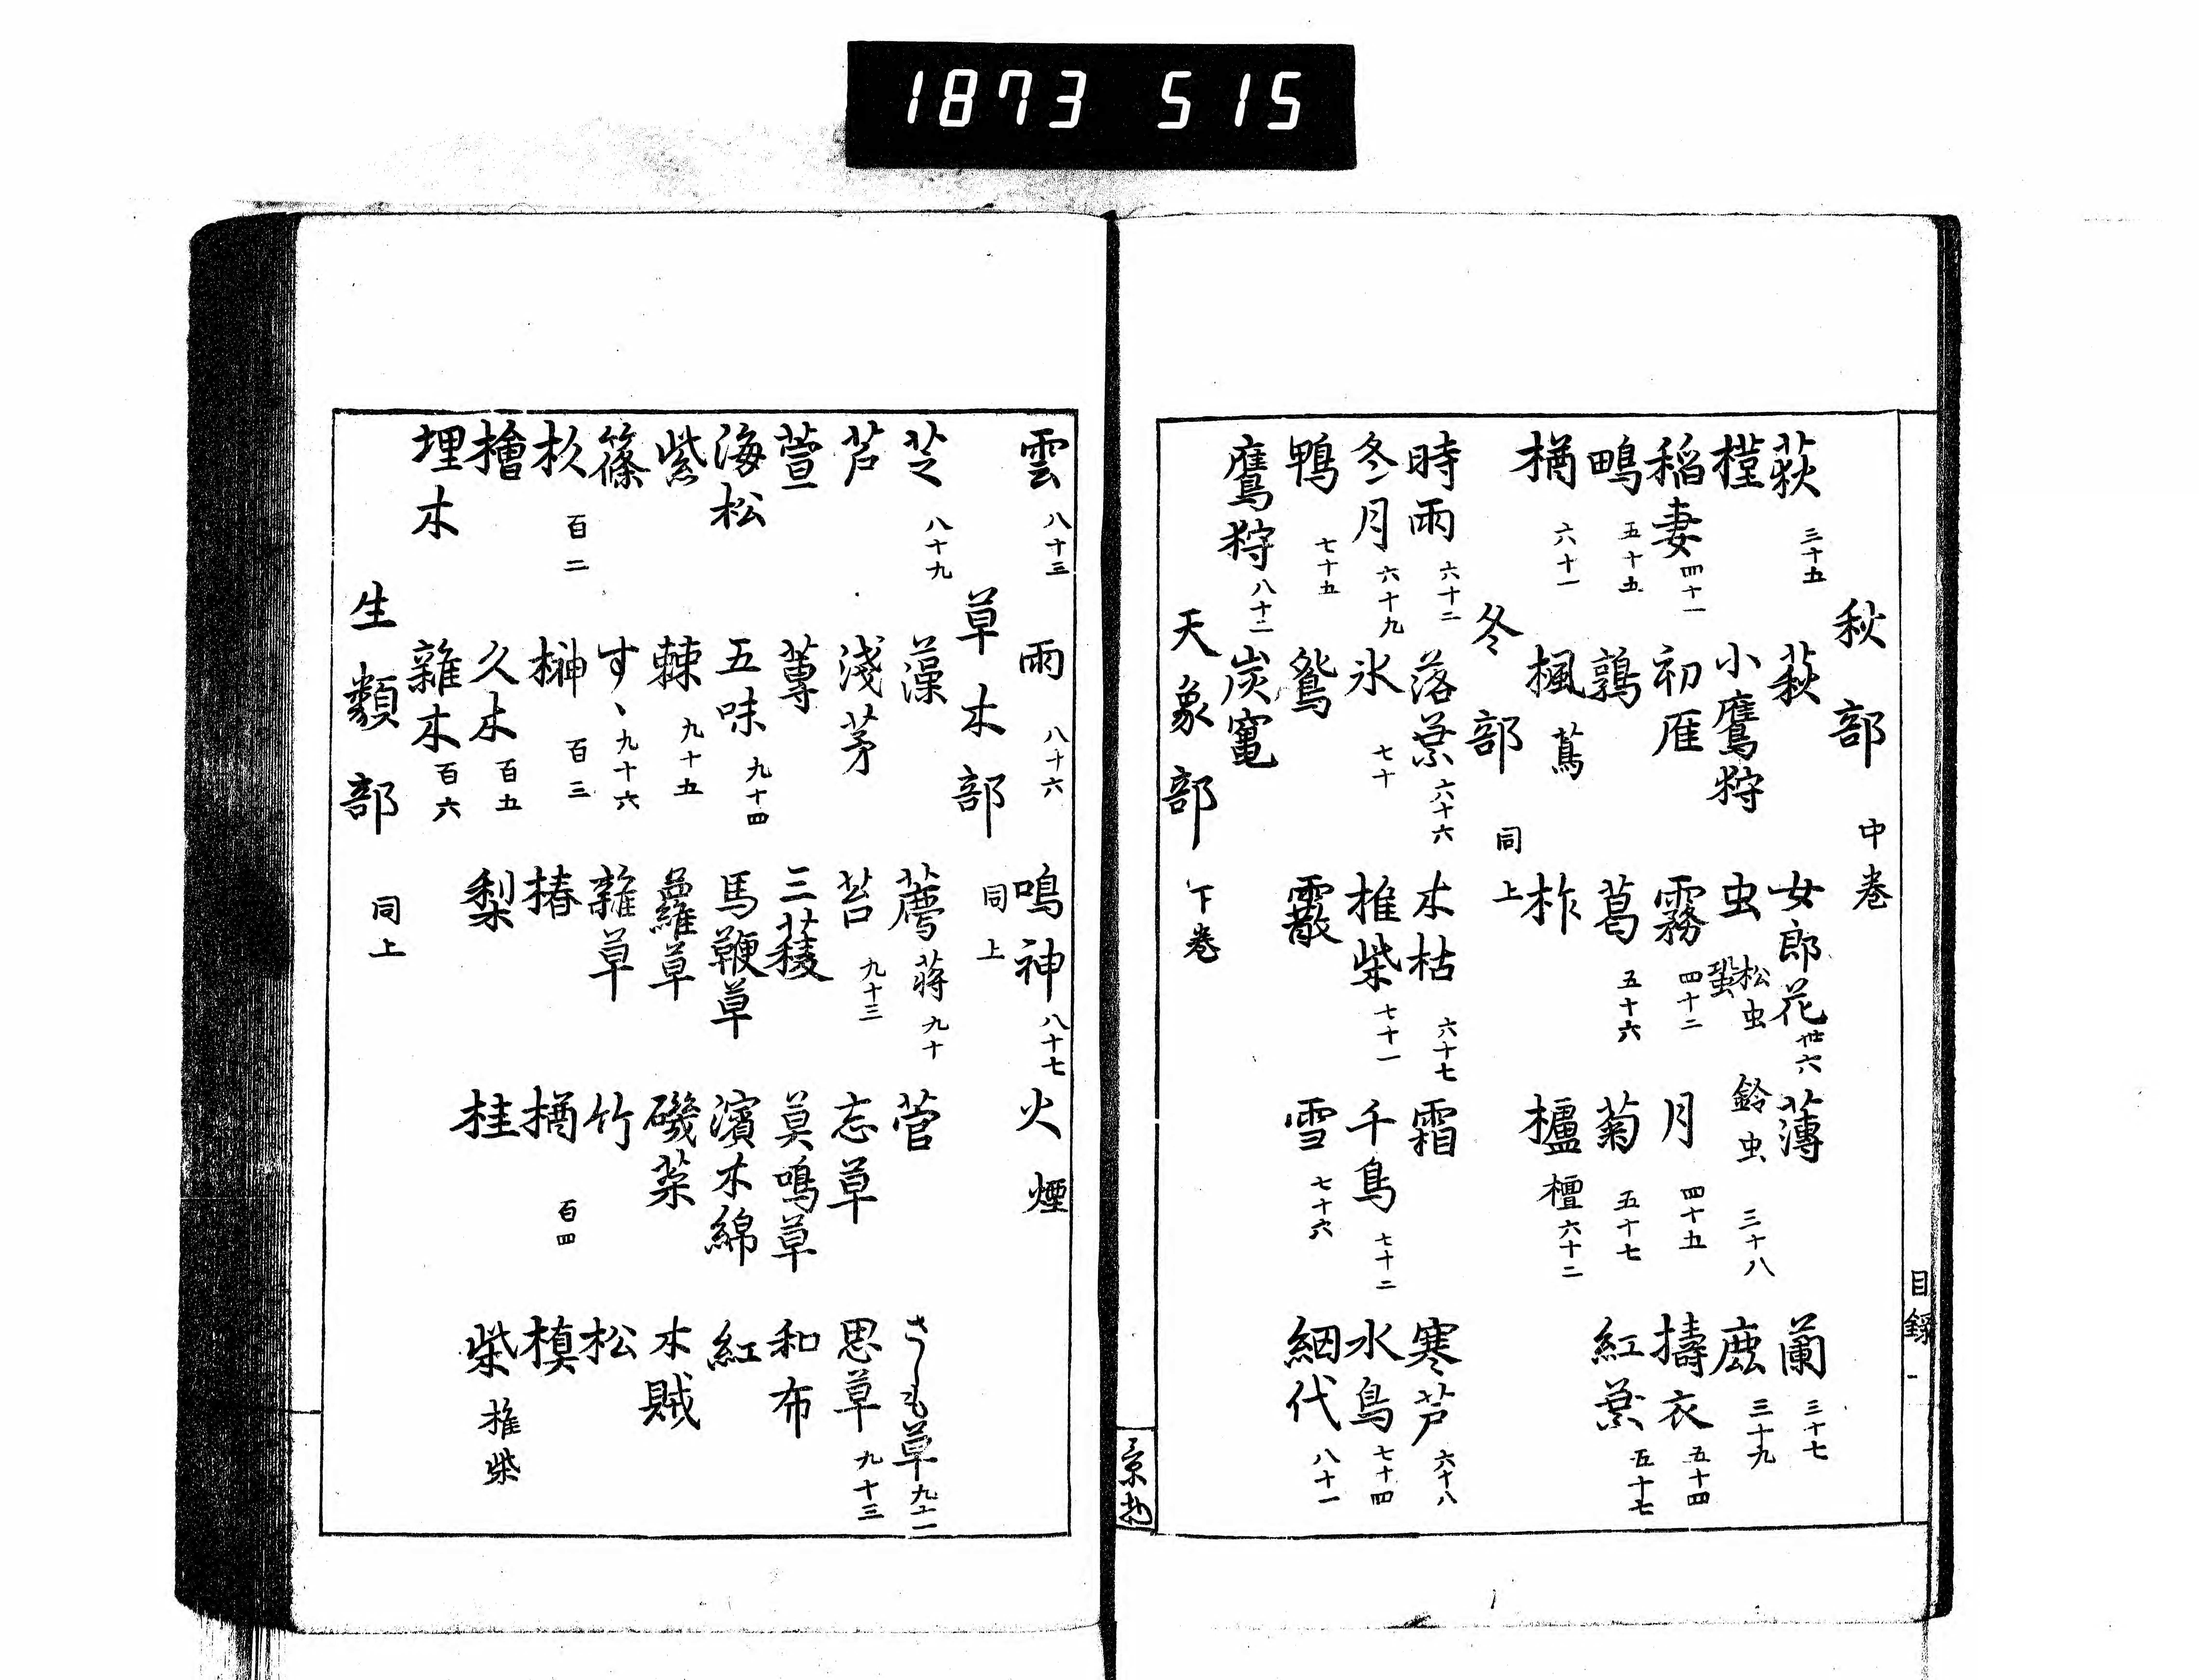 1873 515
秋部 中巻
荻 三十五 萩 女郎花 卅六 薄 蘭 三十七
槿 小鷹狩 虫 松虫 蛩 鈴虫 三十八 鹿 三十九
稲妻 四十一 初雁 霧 四十二 月 四十五 擣衣 五十四
鴫 五十五 鶉 葛 五十六 菊 五十七 紅葉 五十七
楢 六十一 楓 蔦 柞 櫨 檀 六十二
冬部 同上
時雨 六十二 落葉 六十六 木枯 六十七 霜 寒芦 六十八
冬月 六十九 氷 七十 椎柴 七十一 千鳥 七十二 水鳥 七十四
鴨 七十五 鴛 霰 雪 七十六 網代 八十一
鷹狩 八十二 炭竃
天象部 下巻
目録 一
景物
雲 八十三 雨 八十六 鳴神 八十七 火 煙
草木部 同上
芝 八十九 藻 薦 蒋 九十 菅 さしも草 九十一
芦 淺茅 苔 九十三 忘草 思草 九十三
萱 蓴 三稜 莫鳴草 和布
海松 五味 九十四 馬鞭草 濱木綿 紅
紫 棘 九十五 蘿草 磯菜 木賊
篠 すゝ 九十六 雜草 竹 松
杦 百二 榊 百三 椿 楢 百四 槙
檜 久木 百五 梨 桂 柴 椎柴
埋木 雜木 百六
生類部 同上